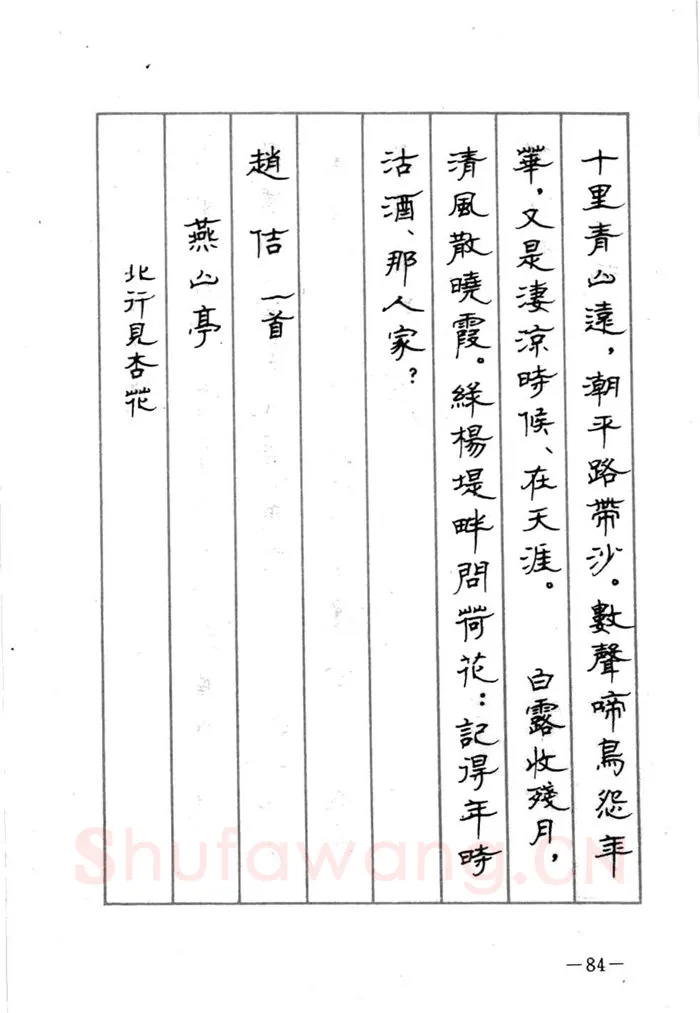 十里青山遠，潮平路帶沙。數聲啼鳥怨年
華，又是淒涼時候、在天涯。　白露收殘月，
清風散曉霞。綠楊堤畔問荷花：記得年時
沽酒、那人家？
趙佶一首
燕山亭
北行見杏花
Shufawang.CN
—84—